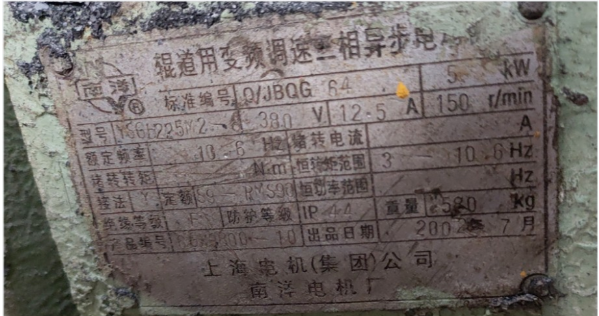 辊道用变频调速三相异步电
南洋 ®
标准编号 Q/JBQG 64 5 kW
型号 225M2-8 380 V 12.5 A 150 r/min
额定频率 10.6 Hz 堵转电流 A
堵转转矩 N.m 恒转矩范围 3 — 10.6 Hz
接法 Y 定额 恒功率范围 Hz
绝缘等级 防护等级 IP 44 重量 kg
产品编号 出品日期 2002 年 7 月
上海电机(集团)公司
南洋电机厂